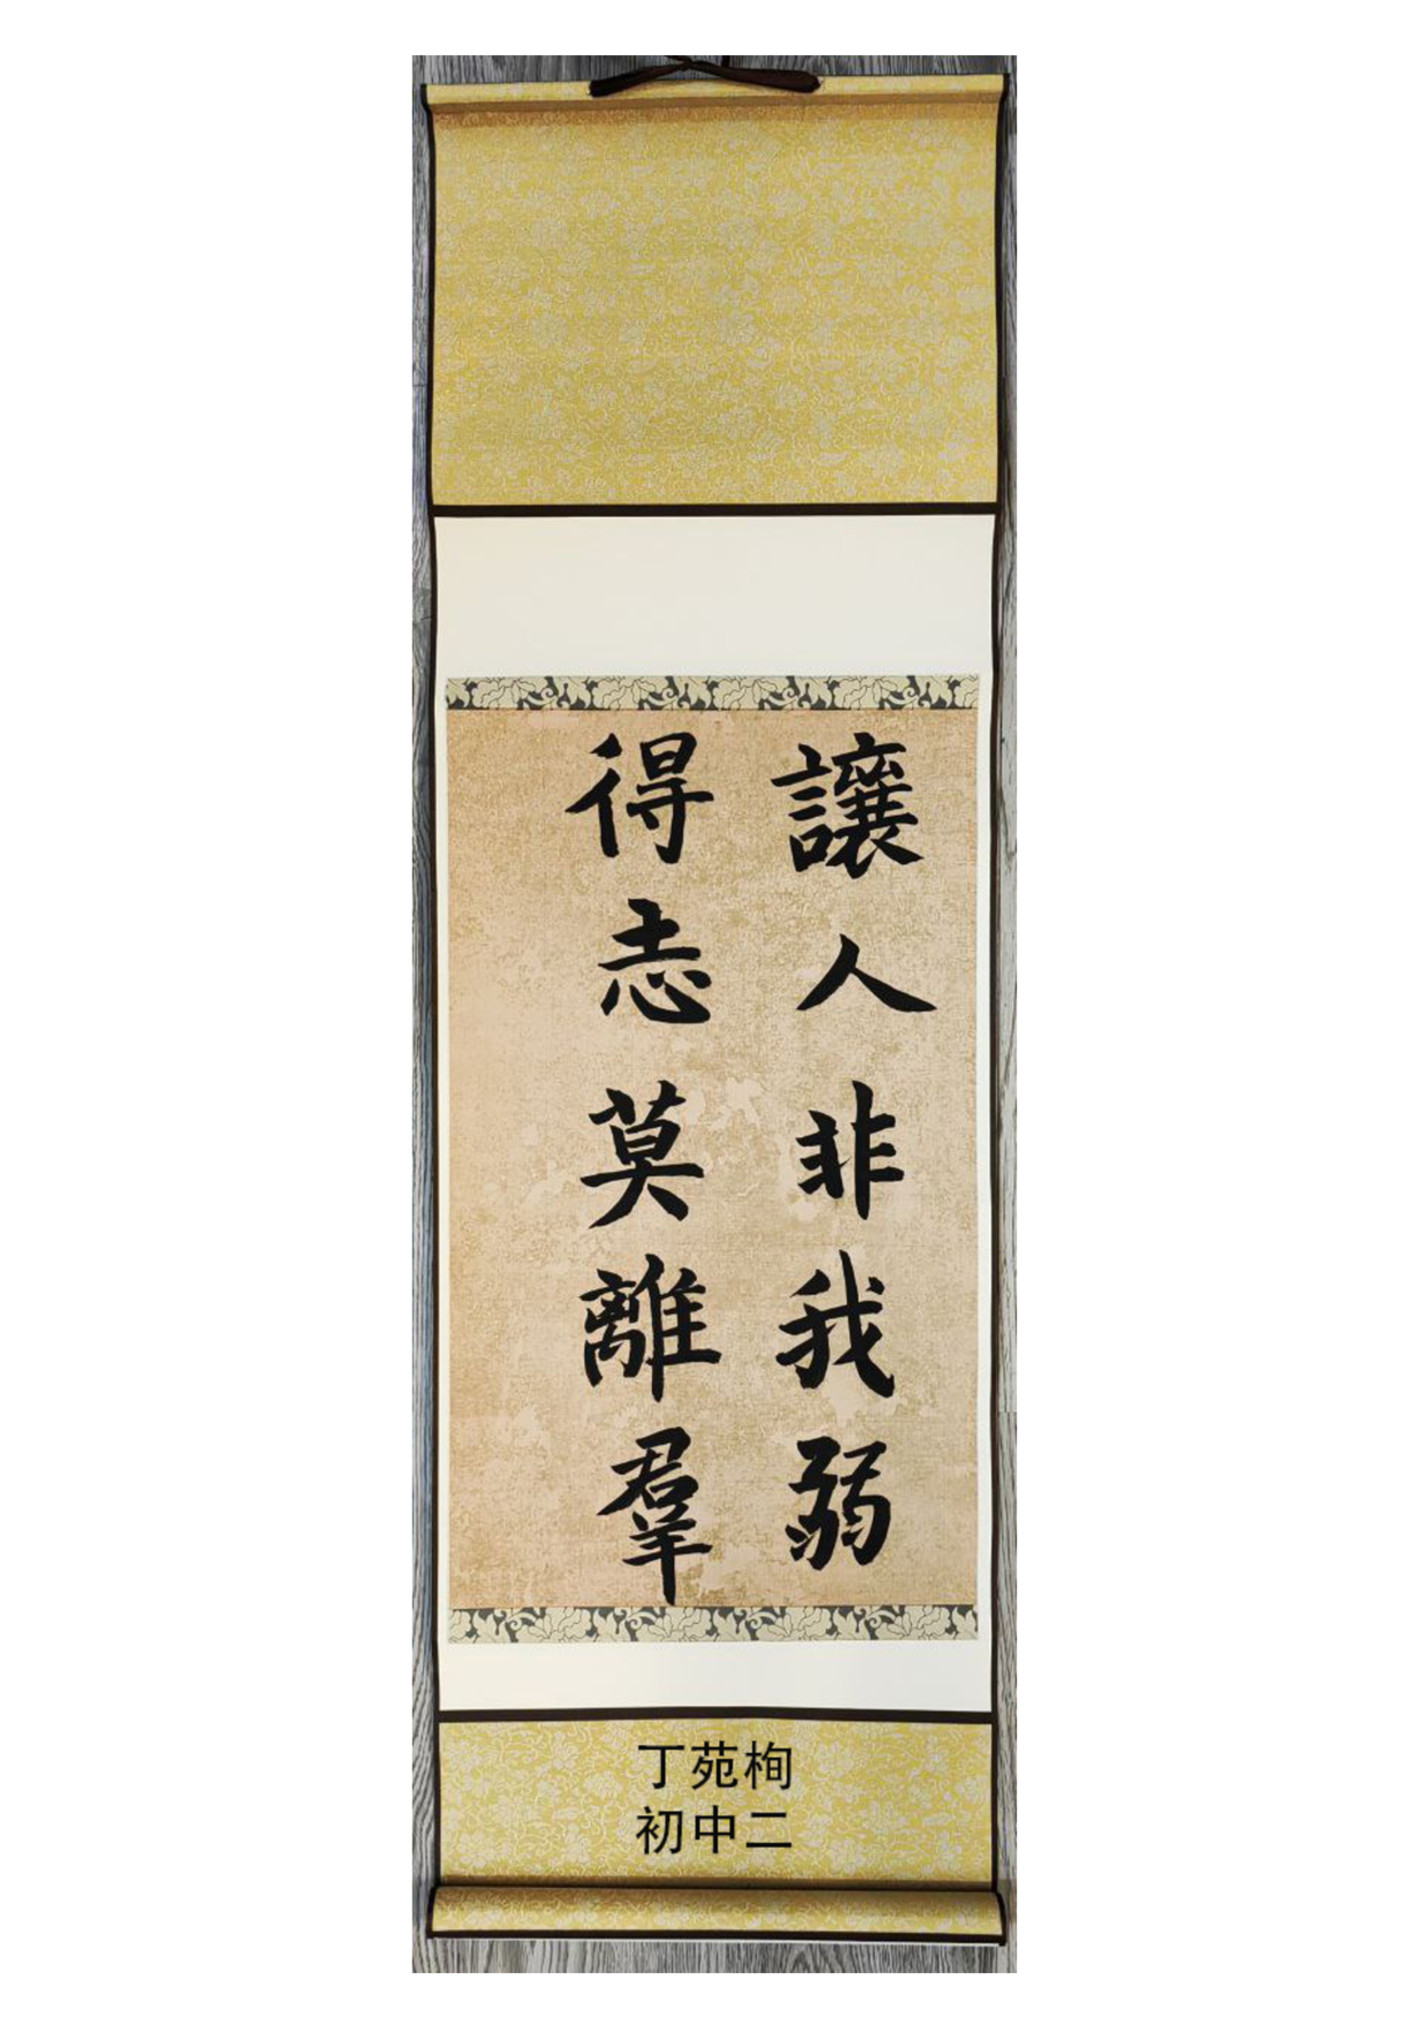 讓人非我弱
得志莫離羣
丁苑栒
初中二